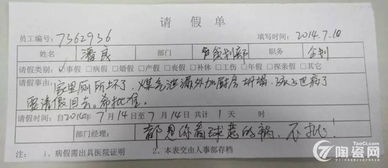 请假单
员工编号：7362936 填写时间：2014.7.10
姓名 潘良 部门 策划部 职务 企划
请假类别：☑事假 □病假 □婚假 □产假 □丧假 □休假 □工伤 □年假 □探亲假 □其它
请假事由：家里厕所坏了，煤气泄漏外加厨房坍塌，
需请假回去。希批准。
请假时间：自2014年7月14日至7月14日共计1天 时
部门经理： 都是你看球惹的祸，不批
1、病假需出具医院证明 2、本表交由人事部存档
陶瓷网